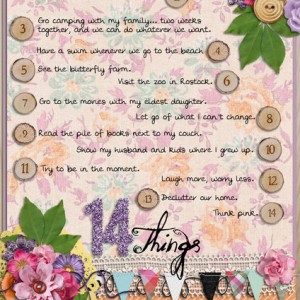 3 Go camping with my family... two weeks
together, and we can do whatever we want.
Have a swim whenever we go to the beach. 4
5 See the butterfly farm.
Visit the zoo in Rostock. 6
7 Go to the movies with my eldest daughter.
Let go of what I can't change. 8
9 Read the pile of books next to my couch.
Show my husband and kids where I grew up. 10
11 Try to be in the moment.
Laugh more, worry less. 12
13 Declutter our home.
Think pink. 14
14 things